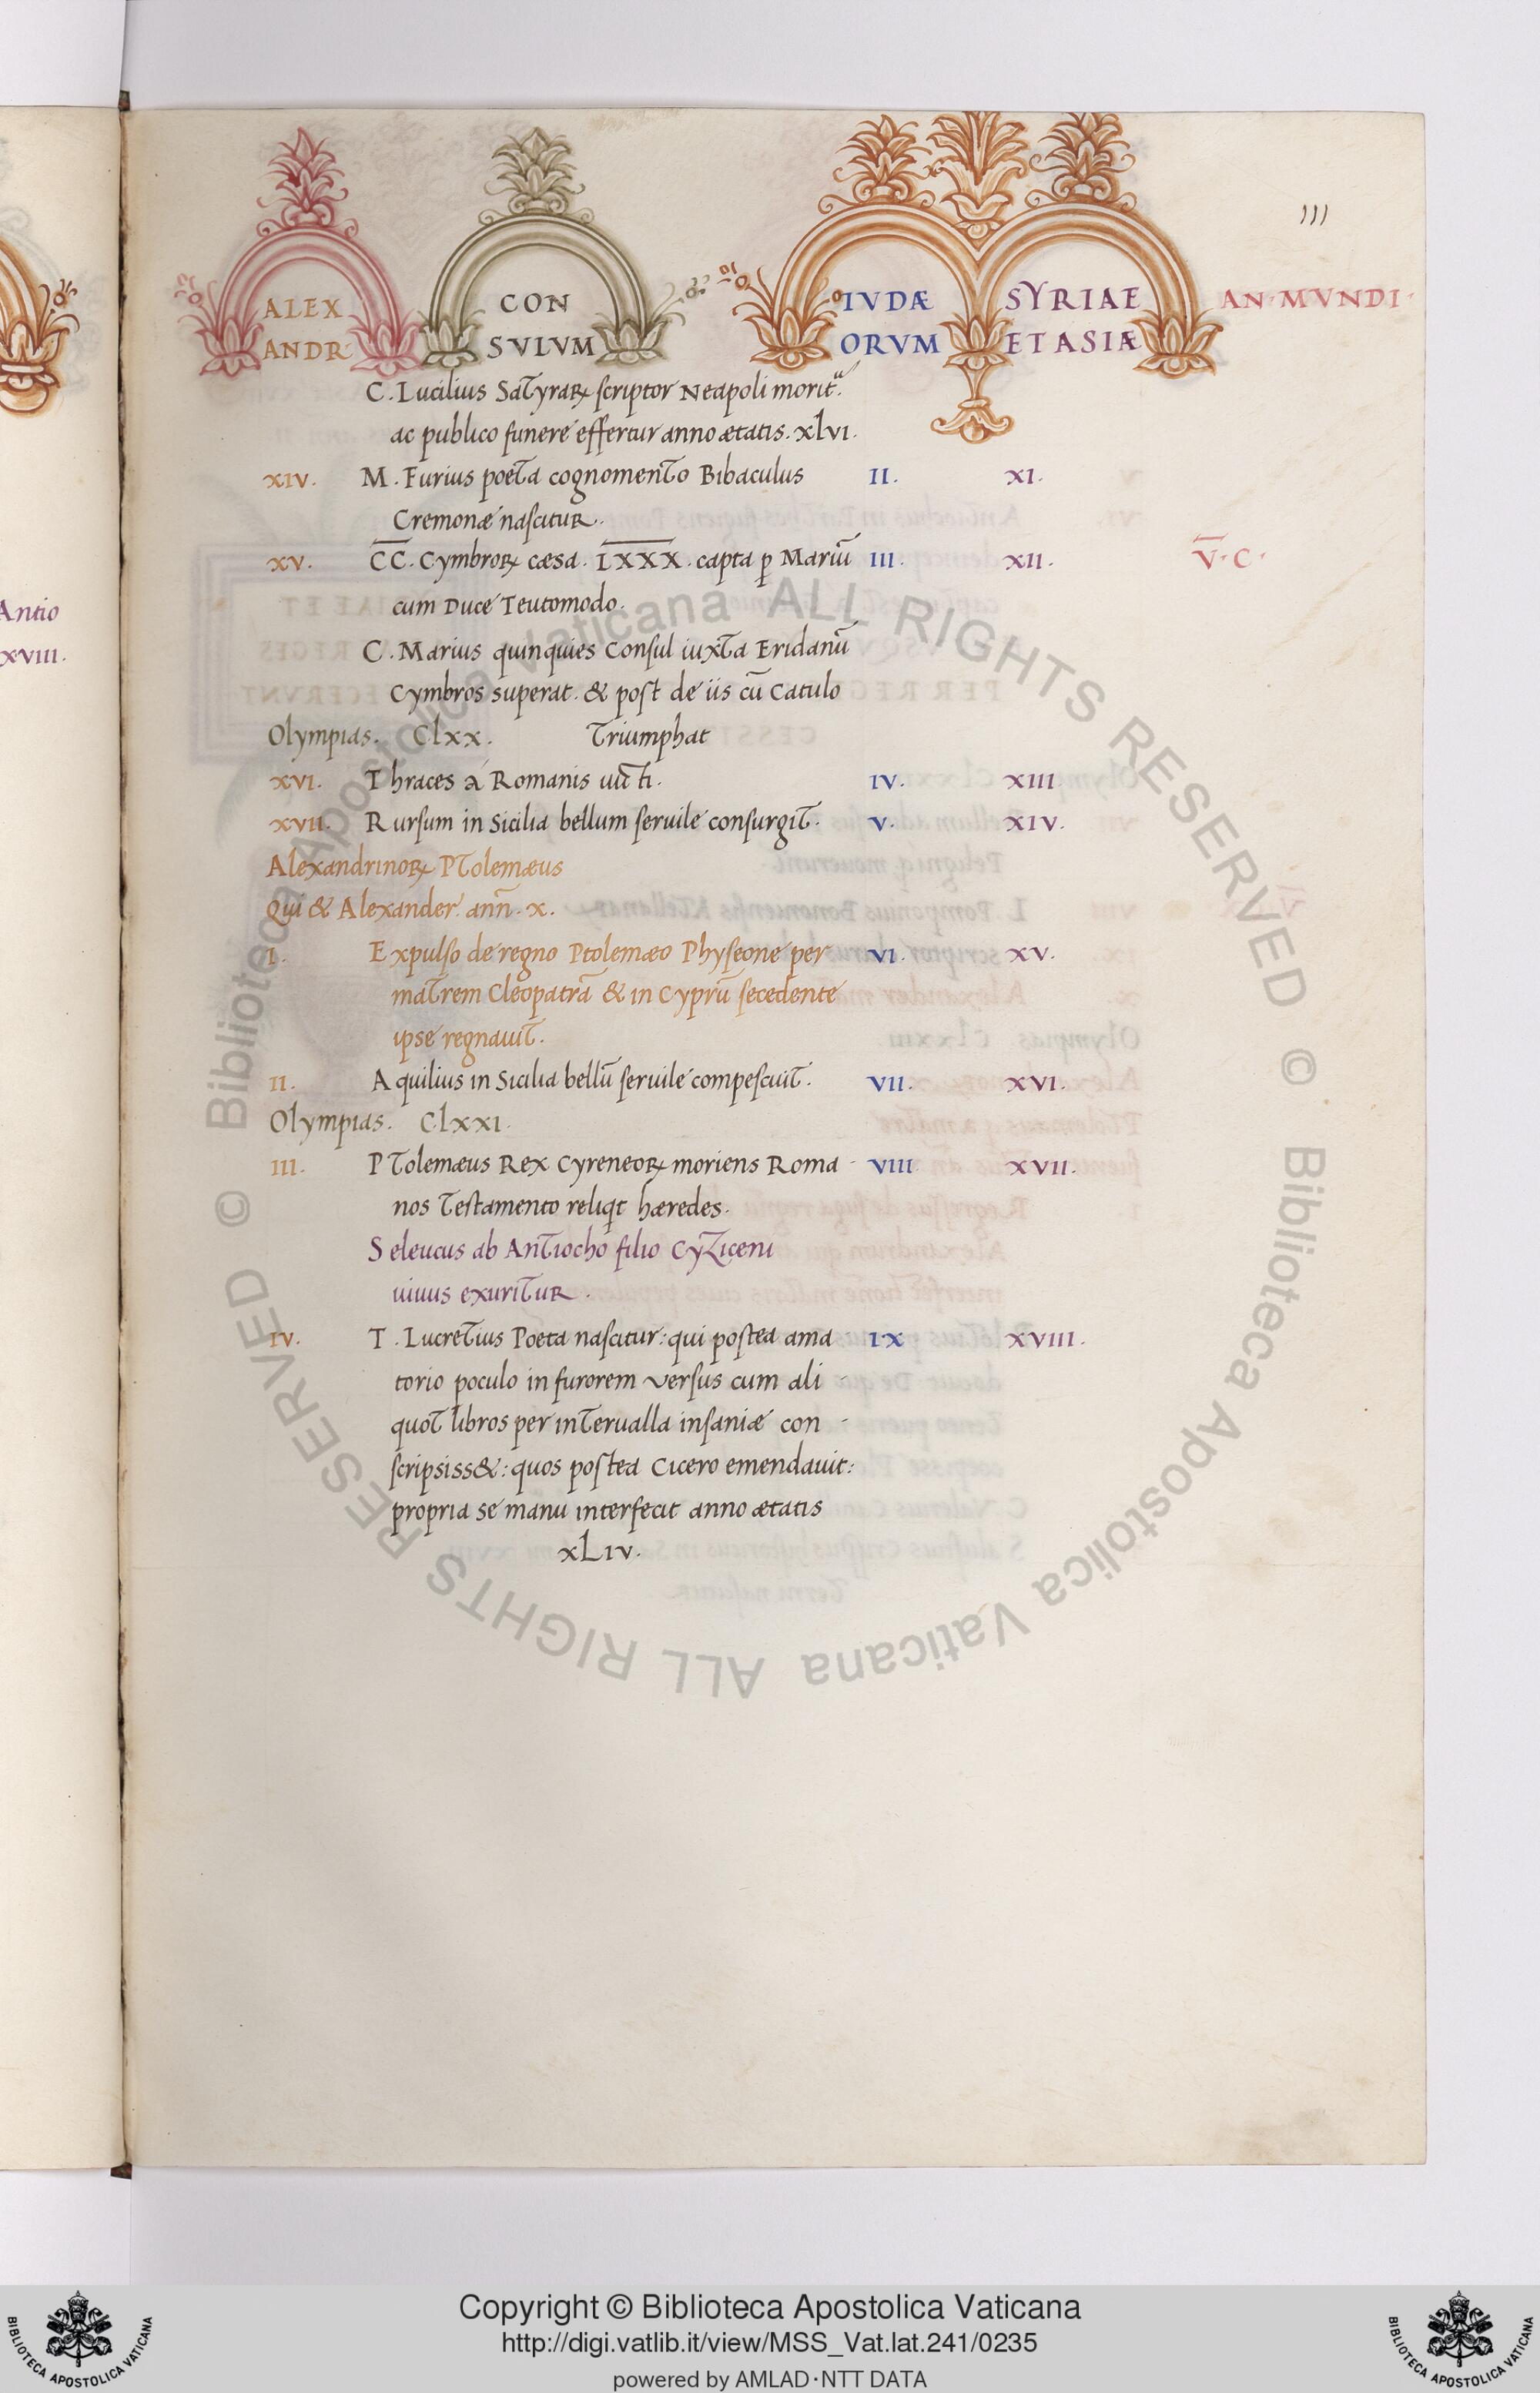 111
ALEX
ANDR
CON
SVLVM
IVDÆ
ORVM
SYRIAE
ET ASIÆ
AN·MVNDI·
C. Lucilius Satyraꝝ scriptor Neapoli moritᵘ.
ac publico funere effertur anno ætatis. xlvi.
Antio
XVIII.
XIV. M. Furius poeta cognomento Bibaculus II. XI.
Cremonæ nascitur.
XV. C̅C̅. Cymbroꝝ cæsa. L̅X̅X̅X̅. capta ꝑ Mariū III. XII. V̅·C·
cum Duce Teutomodo.
C. Marius quinquies Consul iuxta Eridanū
Cymbros superat. & post de iis cū Catulo
Olympias. Clxx. Triumphat
XVI. Thraces à Romanis uicti. IV. XIII
XVII. Rursum in Sicilia bellum seruile consurgit. V. XIV.
Alexandrinoꝝ Ptolemæus
Qui & Alexander ann̄. x.
I. Expulso de regno Ptolemæo Physeone per VI. XV.
matrem Cleopatrā & in Cyprū secedente
ipse regnauit.
II. Aquilius in Sicilia bellū seruile compescuit. VII. XVI.
Olympias. Clxxi.
III. Ptolemæus Rex Cyreneoꝝ moriens Roma- VIII XVII.
nos testamento reliqt hæredes.
Seleucus ab Antiocho filio Cyziceni
uiuus exuritur.
IV. T. Lucretius Poeta nascitur: qui postea ama IX XVIII.
torio poculo in furorem versus cum ali-
quot libros per interualla insaniæ con-
scripsiss&: quos postea Cicero emendauit:
propria se manu interfecit anno ætatis
xLiv.
© Biblioteca Apostolica Vaticana ALL RIGHTS RESERVED © Biblioteca Apostolica Vaticana ALL RIGHTS RESERVED
Copyright © Biblioteca Apostolica Vaticana
http://digi.vatlib.it/view/MSS_Vat.lat.241/0235
powered by AMLAD·NTT DATA
BIBLIOTECA APOSTOLICA VATICANA
BIBLIOTECA APOSTOLICA VATICANA